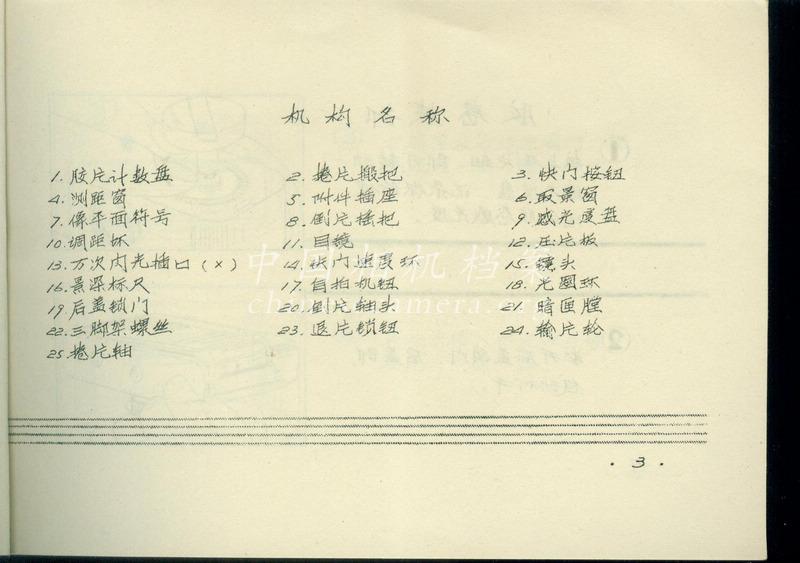 机构名称
1.胶片计数盘 2.捲片搬把 3.快门按钮
4.测距窗 5.附件插座 6.取景窗
7.像平面符号 8.倒片摇把 9.感光度盘
10.调距环 11.目镜 12.压片板
13.万次闪光插口(X) 14.快门速度环 15.镜头
16.景深标尺 17.自拍机钮 18.光圈环
19.后盖锁门 20.倒片轴头 21.暗画膛
22.三脚架螺丝 23.退片锁钮 24.输片轮
25.捲片轴
·3·